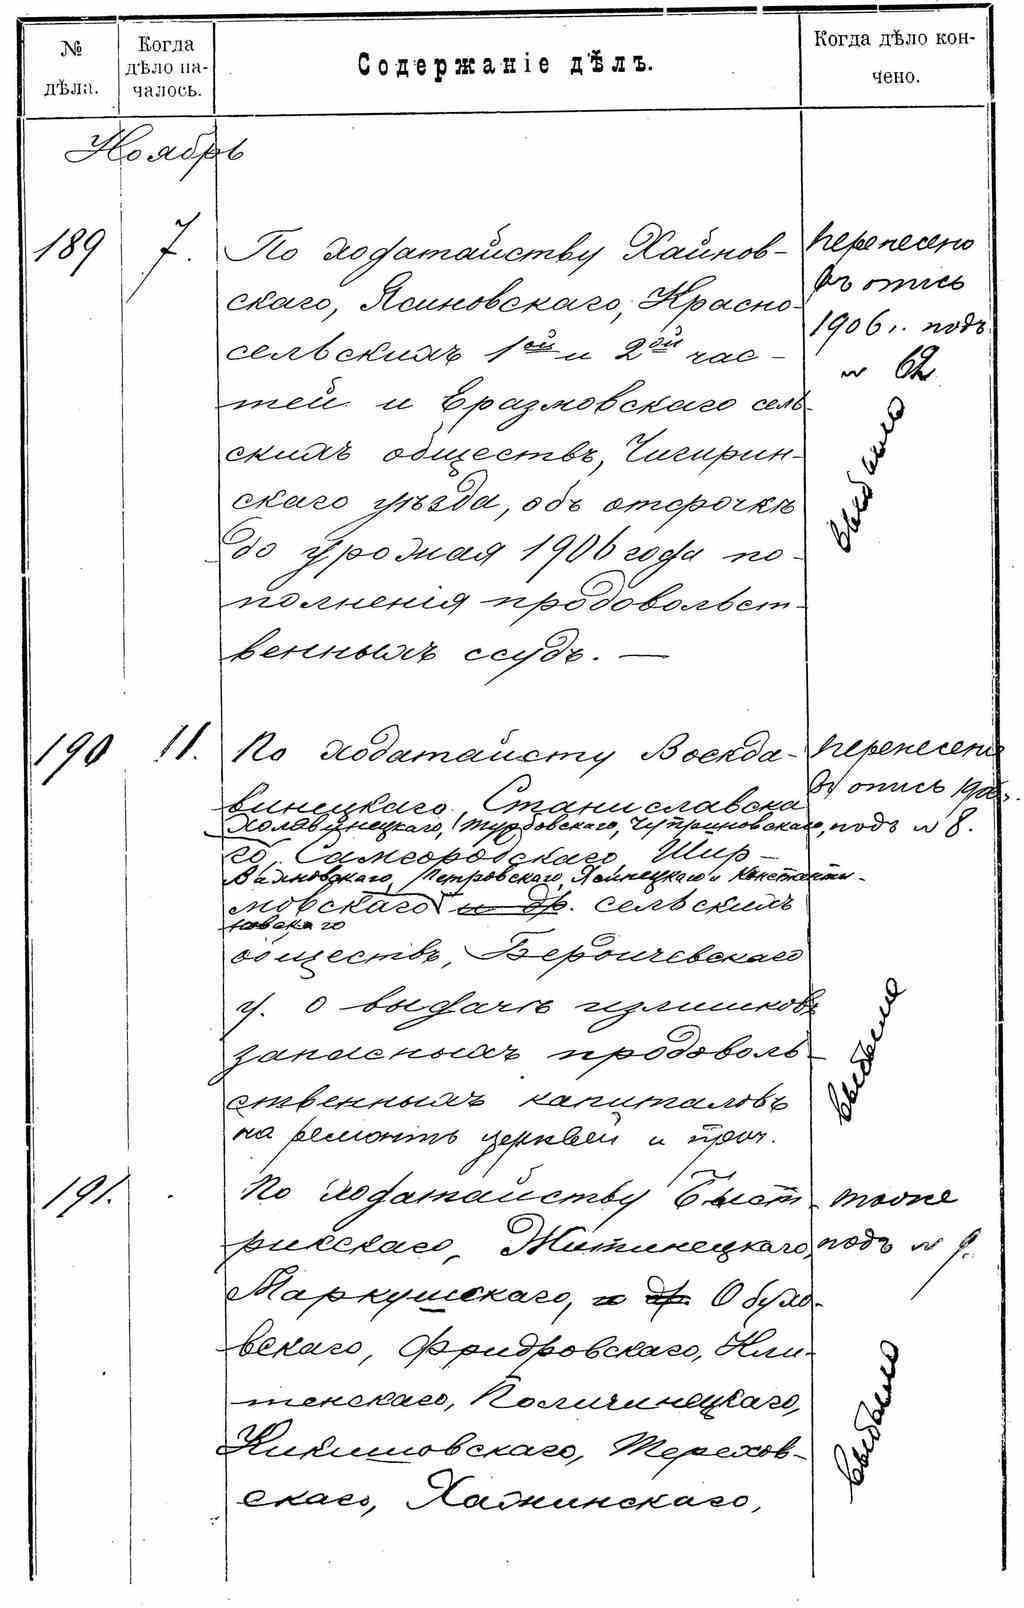 № дѣла.
Когда дѣло началось.
Содержаніе дѣлъ.
Когда дѣло кончено.
Ноябрь
189
7.
По ходатайству Хайнов-
скаго, Ясиновскаго, Красно-
сельскихъ 1ой и 2ой час-
тей и Еразмовскаго сель-
скихъ обществъ, Чигирин-
скаго уѣзда, объ отсрочкѣ
до урожая 1906 года по-
полненія продовольст-
венныхъ ссудъ. —
перенесено
въ опись
1906 г. подъ
№ 62
выбыло
190
11.
По ходатайсту Воскда-
винецкаго, Станиславска
Холявинецкаго, Турбовскаго, Чуприновскаго,
го, Самгородскаго, Шир-
Вахновскаго, Петровскаго, Ясинецкаго и Константи-
мовскаго и др. сельскихъ
новскаго
обществъ, Бердичевскаго
у. о выдачѣ излишковъ
запасныхъ продоволь-
ственныхъ капиталовъ
на ремонтъ церквей и проч.
перенесено
въ опись 1906 г.
подъ № 8.
выбыло
191.
По ходатайству Быст-
рикскаго, Житинецкаго,
Маркушскаго, и др. Обухо-
вскаго, Фридровскаго, Кли-
тенскаго, Поличинецкаго,
Никишовскаго, Терехов-
скаго, Хажинскаго,
тоже
подъ № 9.
выбыло